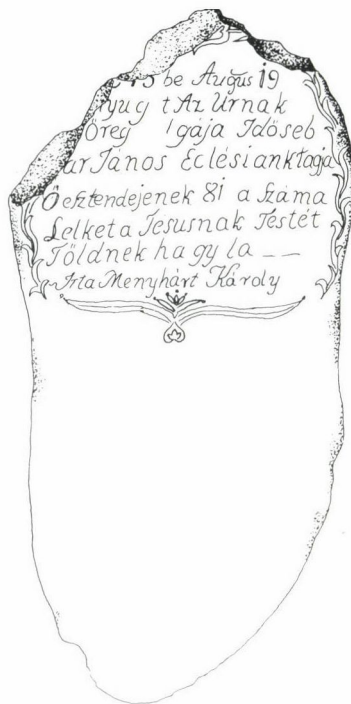 45 be Augus 19
nyug t Az Urnak
Öreg gája Idöseb
ar János Eclésiank tagja
Ö esztendejenek 81 a száma
Lelket a Jesusnak Testét
Földnek hagyla _ _
Irta Menyhárt Károly